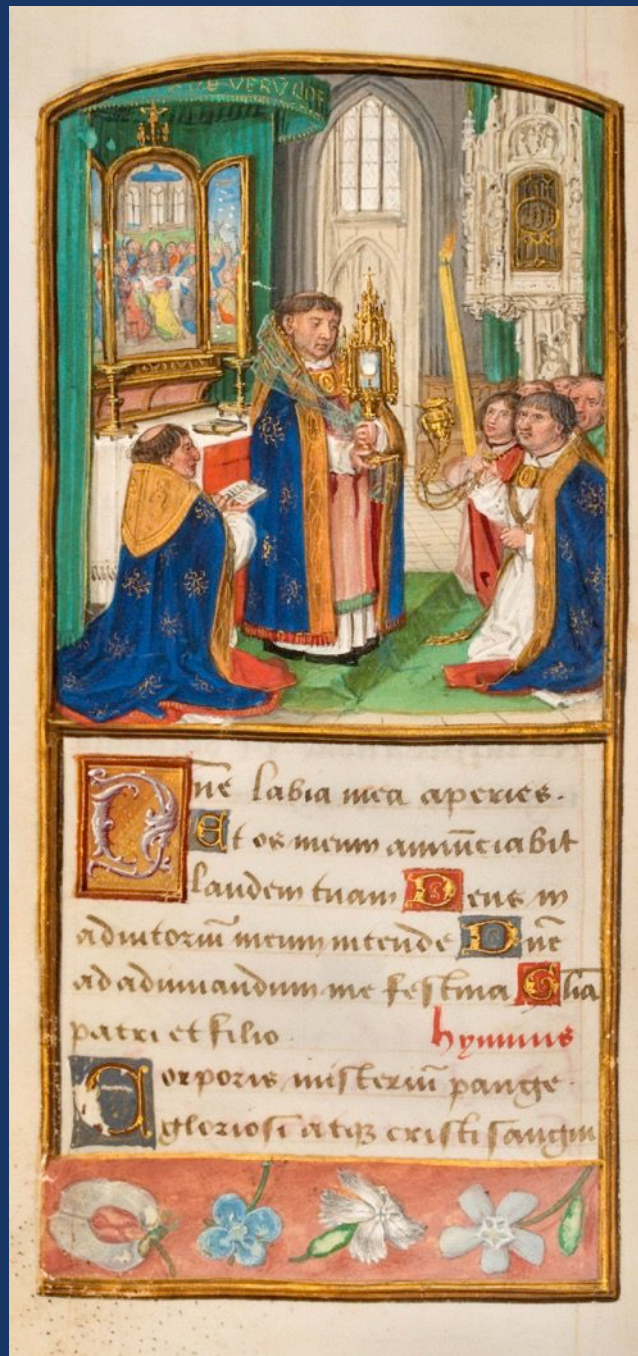 VERV̄
Dn̄e labia mea aperies.
Et os meum annūciabit
laudem tuam Deus in
adiutoriū meum intende Dn̄e
ad adiuuandum me festina Gl̄ia
patri et filio. hymnus
Corporis misteriū pange
gloriosi atqꝫ cristi sangui